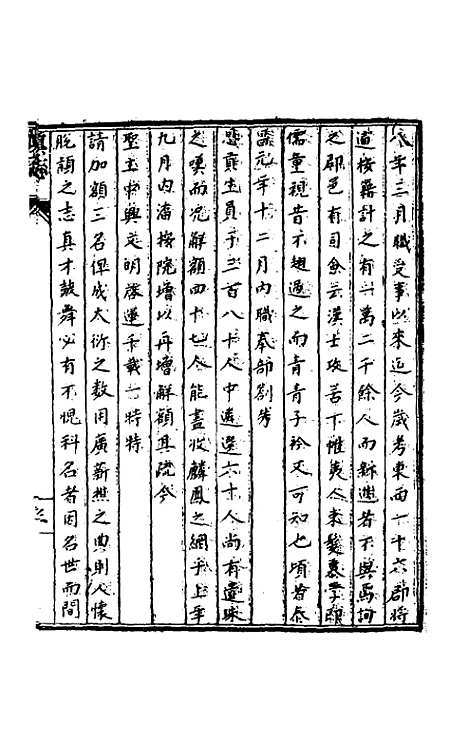 年三月職受事以來迄今歲考東西十六郡將
道按籍計之有二萬二千餘人而新進者不與焉訶
之郡邑有司僉云漢士攻苦下帷夷人來髮裹子
儒童視昔不翅過之而青青子衿又可知也頃者恭
元年十二月內職奉部劄考
恩貢生員于三百八十人中遴選六十人尚有遺珠
之嘆而況解額四十七人能盡收麟鳳之網乎上年
九月內潘按院增以再增解額具疏今
聖主中興文明啟運千載一時特
請加額三名俾成大衍之數用廣薪樵之典則人懷
脫穎之志真才鼓舞必有不愧科名者因名世而間